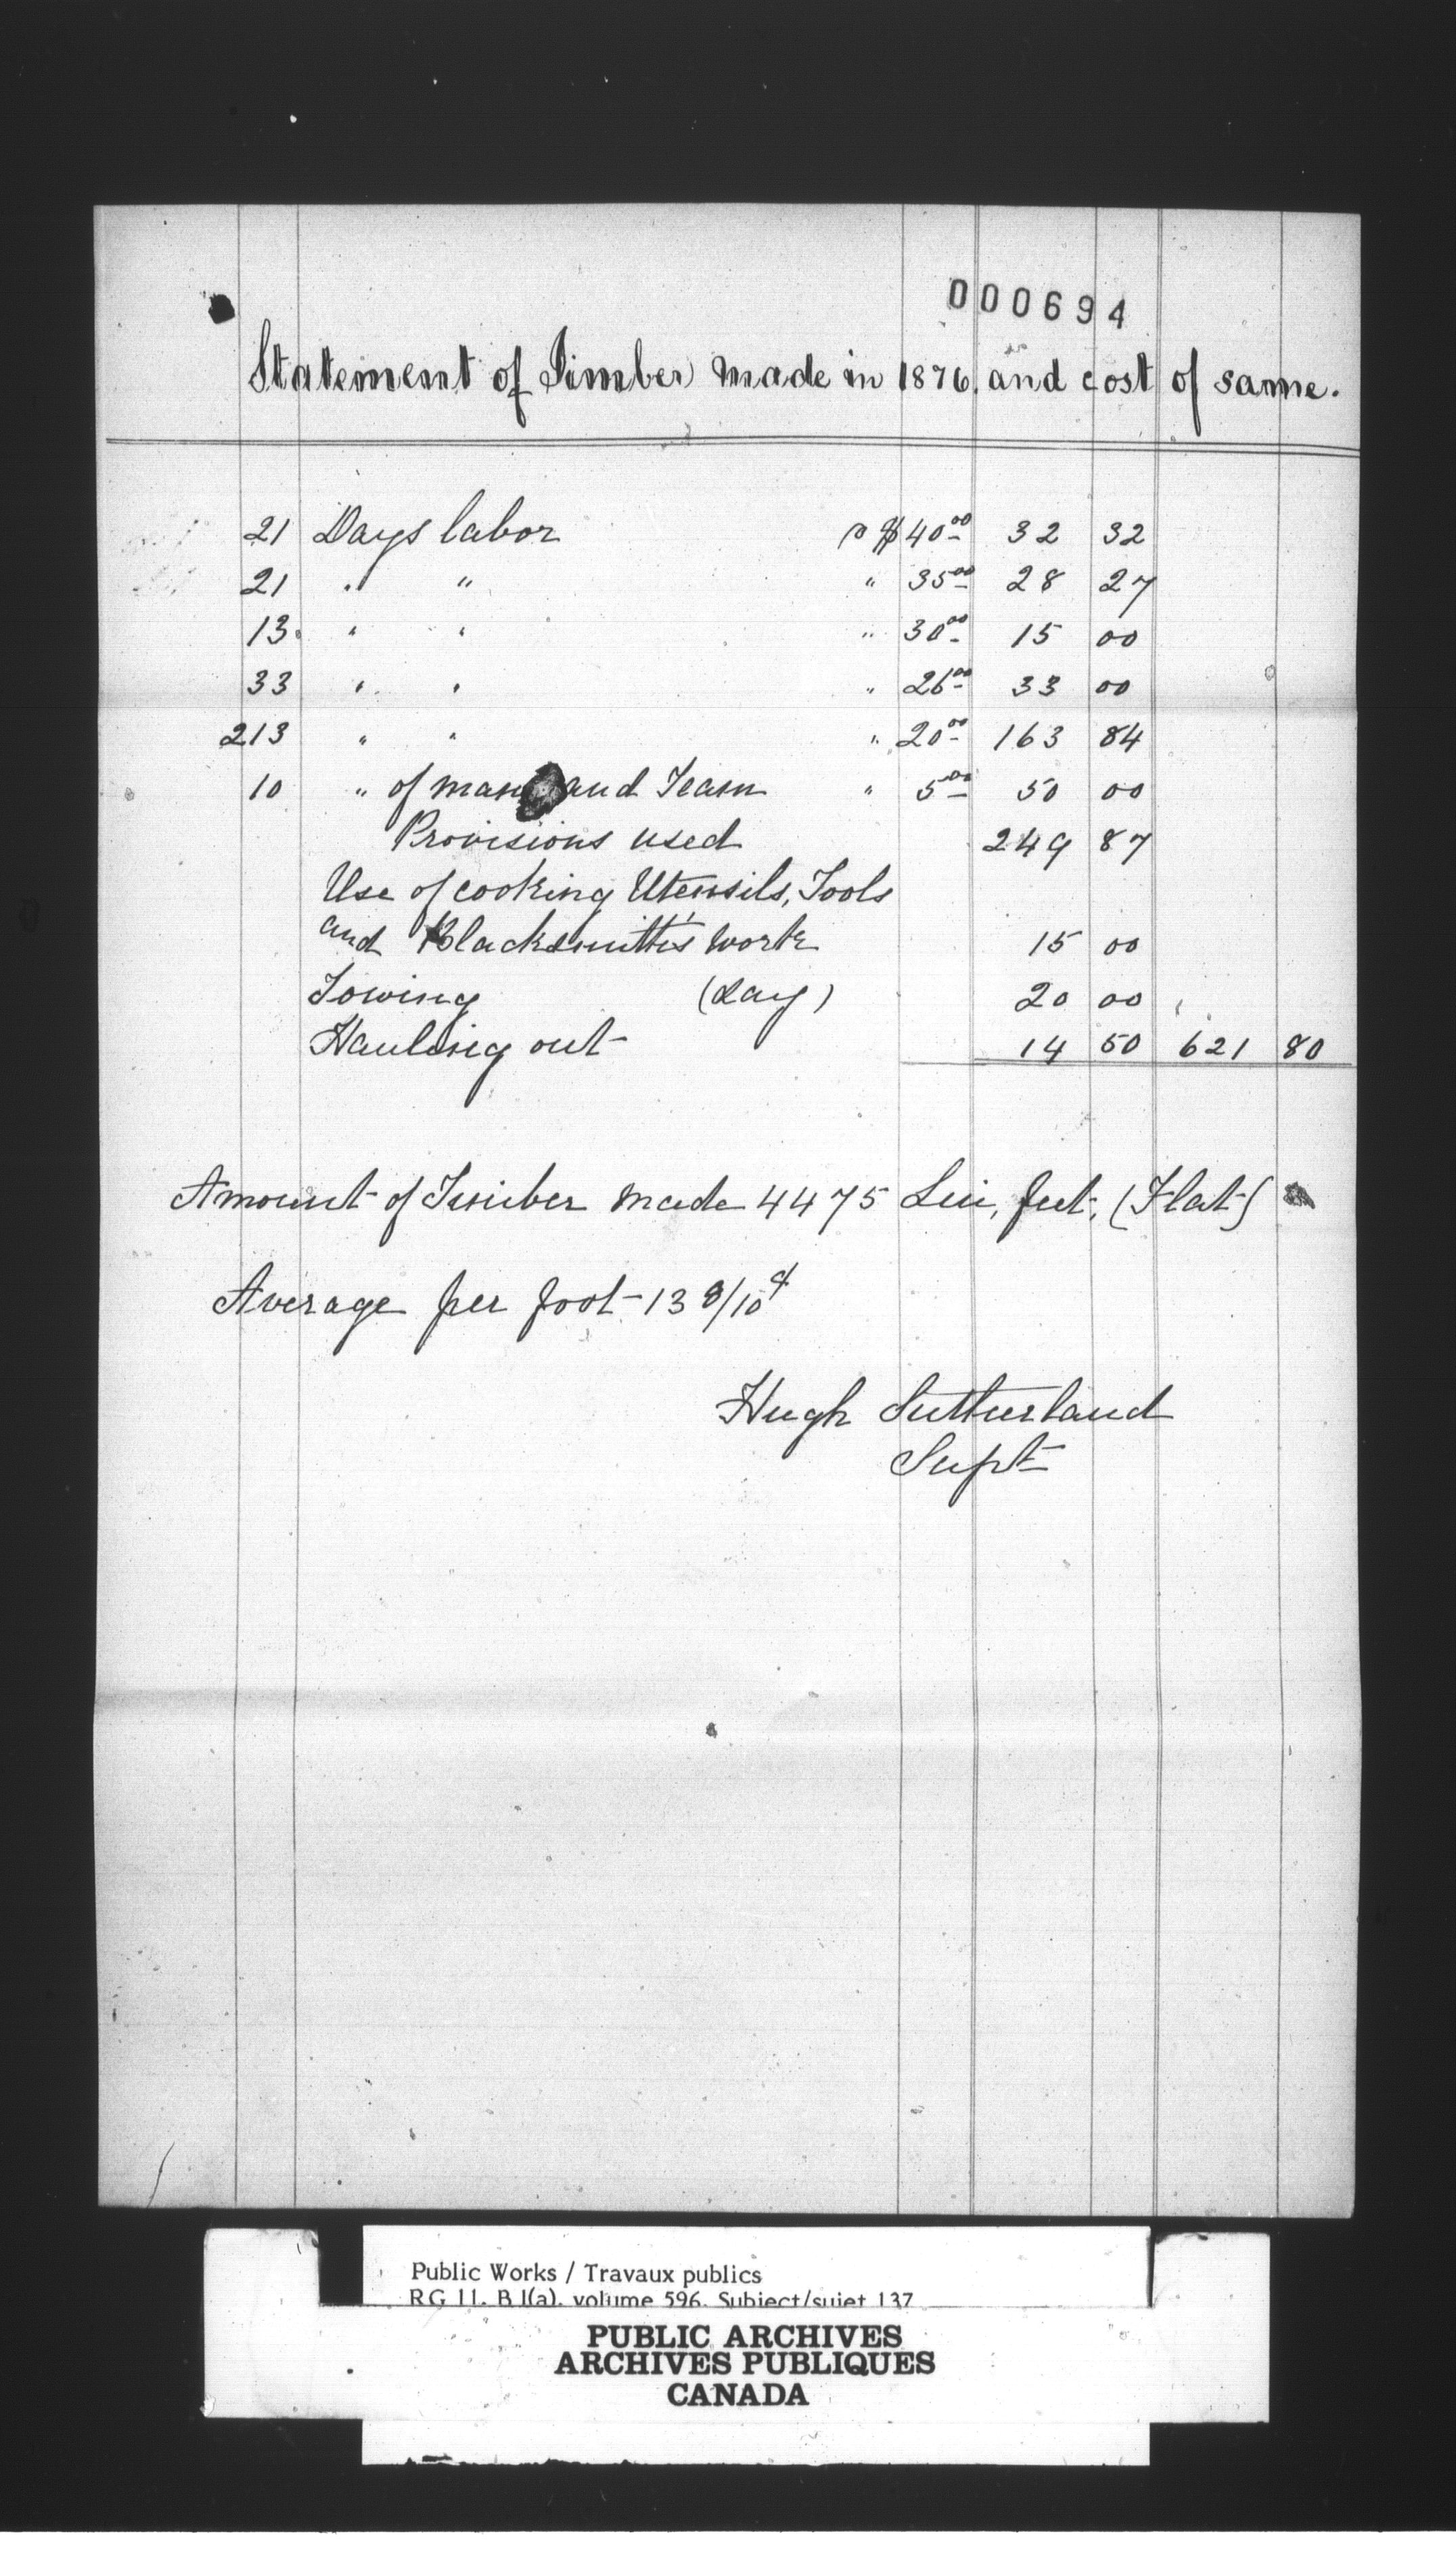 000694
Statement of Timber made in 1876. and cost of same.
21 Days labor @ $40.00 32 32
21 " " " 35.00 28 27
13 " " " 30.00 15 00
33 " " " 26.00 33 00
213 " " " 20.00 163 84
10 " of man and Team " 5.00 50 00
Provisions used 249 87
Use of cooking Utensils, Tools
and Blacksmith's work 15 00
Towing (say) 20 00
Hauling out 14 50 621 80
Amount of Timber made 4475 Lin. feet. (Flat)
Average per foot 13 8/10 ¢
Hugh Sutherland
Supt
Public Works / Travaux publics
RG 11, B 1(a), volume 596, Subject/sujet 137
PUBLIC ARCHIVES
ARCHIVES PUBLIQUES
CANADA